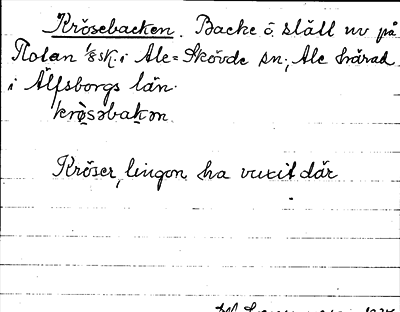 Krösebacken. Backe o. ställ nv på
Nolan 1/8 sk. i Ale-Skövde sn; Ale härad
i Älfsborgs län.
krøsəbakən
Kröser, lingon, ha vuxit där